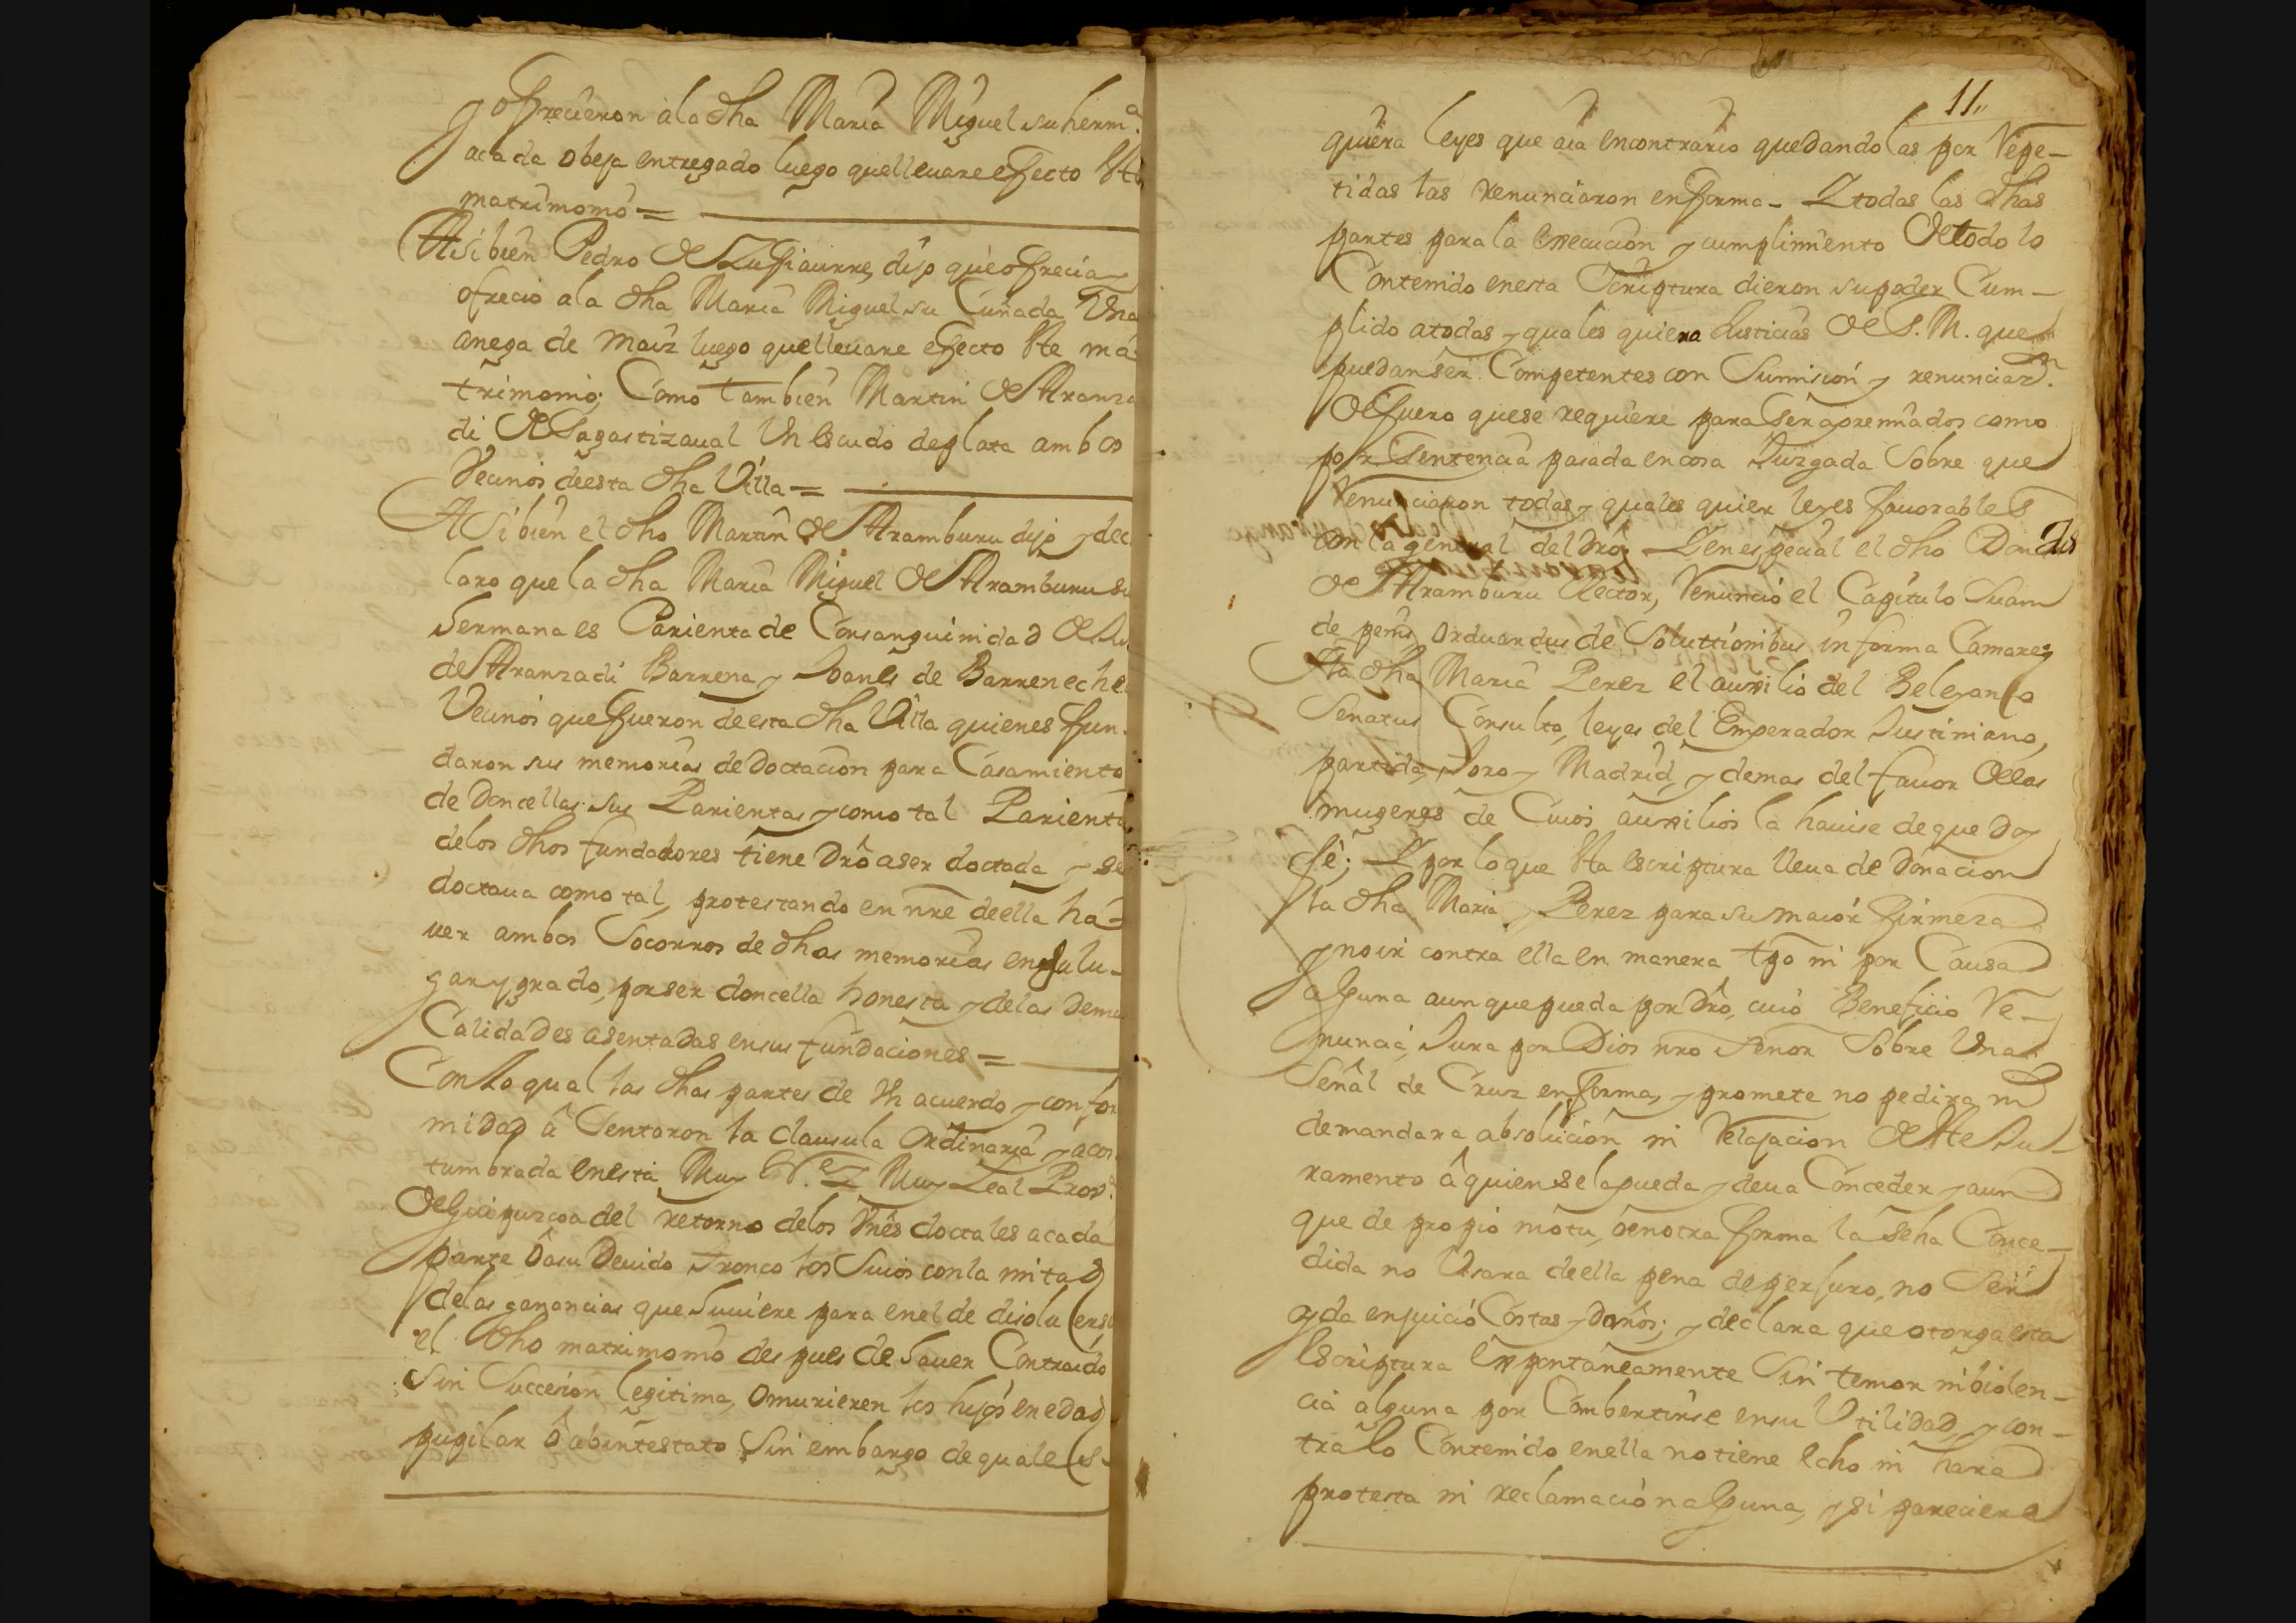 y ofrecieron a la dha Maria Miguel su herm.ª
a cada obeja entregado luego que lleuare efecto este
matrimonio =
Asi bien Pedro de Zufiaurre, dijo que ofrecia y
ofrecio a la dha Maria Miguel su Cuñada Una
anega de maiz luego que lleuare efecto este ma
trimonio; Como tambien Martin de Aranza
di de Sagastizaual Un escudo de plata ambos
Vecinos de esta dha Villa =
Asi bien el dho Martin de Aramburu dijo y dec
laro que la dha Maria Miguel de Aramburu su
hermana es Parienta de Consanguinidad de
de Aranzadi Barrena y Joanes de Barreneche
Vecinos que fueron de esta dha Villa quienes fun-
daron sus memorias de Doctacion para Casamiento
de Doncellas sus Parientas y como tal Parienta
de los dhos fundadores tiene Drô a ser doctada y se
doctaua como tal, protestando en nre de ella ha-
uer ambos Socorros de dhas memorias en su lu-
gar y grado, por ser doncella honesta y de las Dema
Calidades asentadas en sus fundaciones =
Con lo qual las dhas partes de Un acuerdo y confor
midad â Sentaron la clausula Ordinaria y acos
tumbrada en esta Muy N.e y Muy Leal Prov.ª
de Guipuzcoa del retorno de los vnês doctales a cada
parte ô a su Deuido tronco los Suios con la mitad
de las ganancias que huuiere para en el de disoluerse
el dho matrimonio des pues de hauer Contraido
Sin Succesion legitima, o murieren los hijos en edad
pupilar ô abintestato Sin embargo de quales-
11
quiera leyes que aia en contrario quedandolas por Repe-
tidas las renunciaron en forma - Y todas las dhas
partes para la execucion y cumplimiento de todo lo
Contenido en esta Scriptura dieron su poder Cum-
plido a todas y quales quiera Justicias de S. M. que
puedan ser Competentes con Sumision y renunciaz.n
de fuero que se requiere para Ser apremiados como
por Sentencia pasada en cosa Juzgada Sobre que
Renunciaron todas y quales quier leyes fauorables
con la general del Drô; Y en especial el dho Don
de Aramburu Rector, Renuncio el Capitulo Suam
de penis Orduardus de Soluttionibus in forma Camarez
Y la dha Maria Perez el auxilio del Beleyano
Senatus Consulto, leyes del Emperador Justiniano,
partida, Toro y Madrid, y demas del fauor de las
mugeres de Cuios auxilios la hauise de que Doy
fê; Y por lo que esta escriptura lleua de Donacion
la dha Maria Perez para su maior firmeza
y no ir contra ella en manera tpo ni por Causa
alguna aunque pueda por Drô, cuio Beneficio Re-
nuncia, Jura por Dios nro Señor Sobre Una
Señal de Cruz en forma, y promete no pedira ni
demandara absolucion ni Relajacion de este Ju-
ramento â quien se la pueda y deua Conceder y aun
que de propio motu, ô en otra forma la Seha Conce-
dida no Usara de ella pena de perjuro, no Ser
oyda en juicio Costas y Daños; y declara que otorga esta
Escriptura Expontaneamente Sin temor ni biolen-
cia alguna por Combertirse en su Utilidad, y con-
tra lo Contenido en ella no tiene echo ni hara
protesta ni reclamacion alguna, y si pareciere